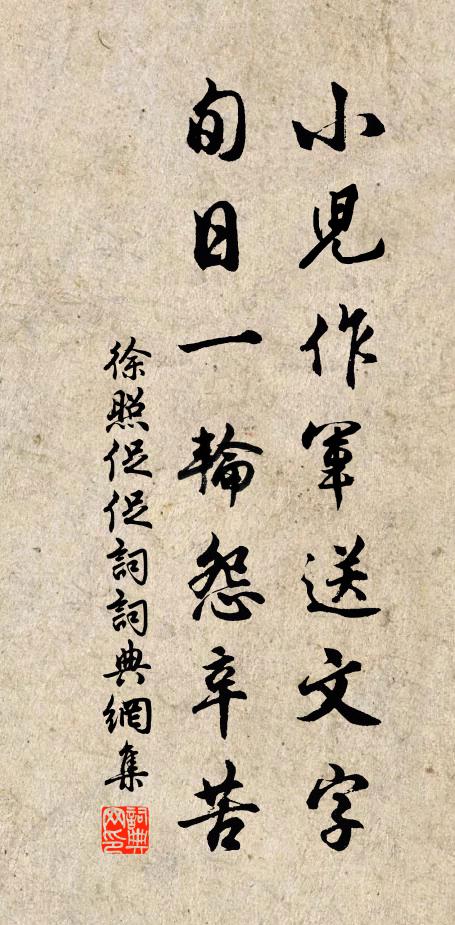 小兒作軍送文字
旬日一輪怨辛苦
徐照促促詞詞典網集
詞典網印